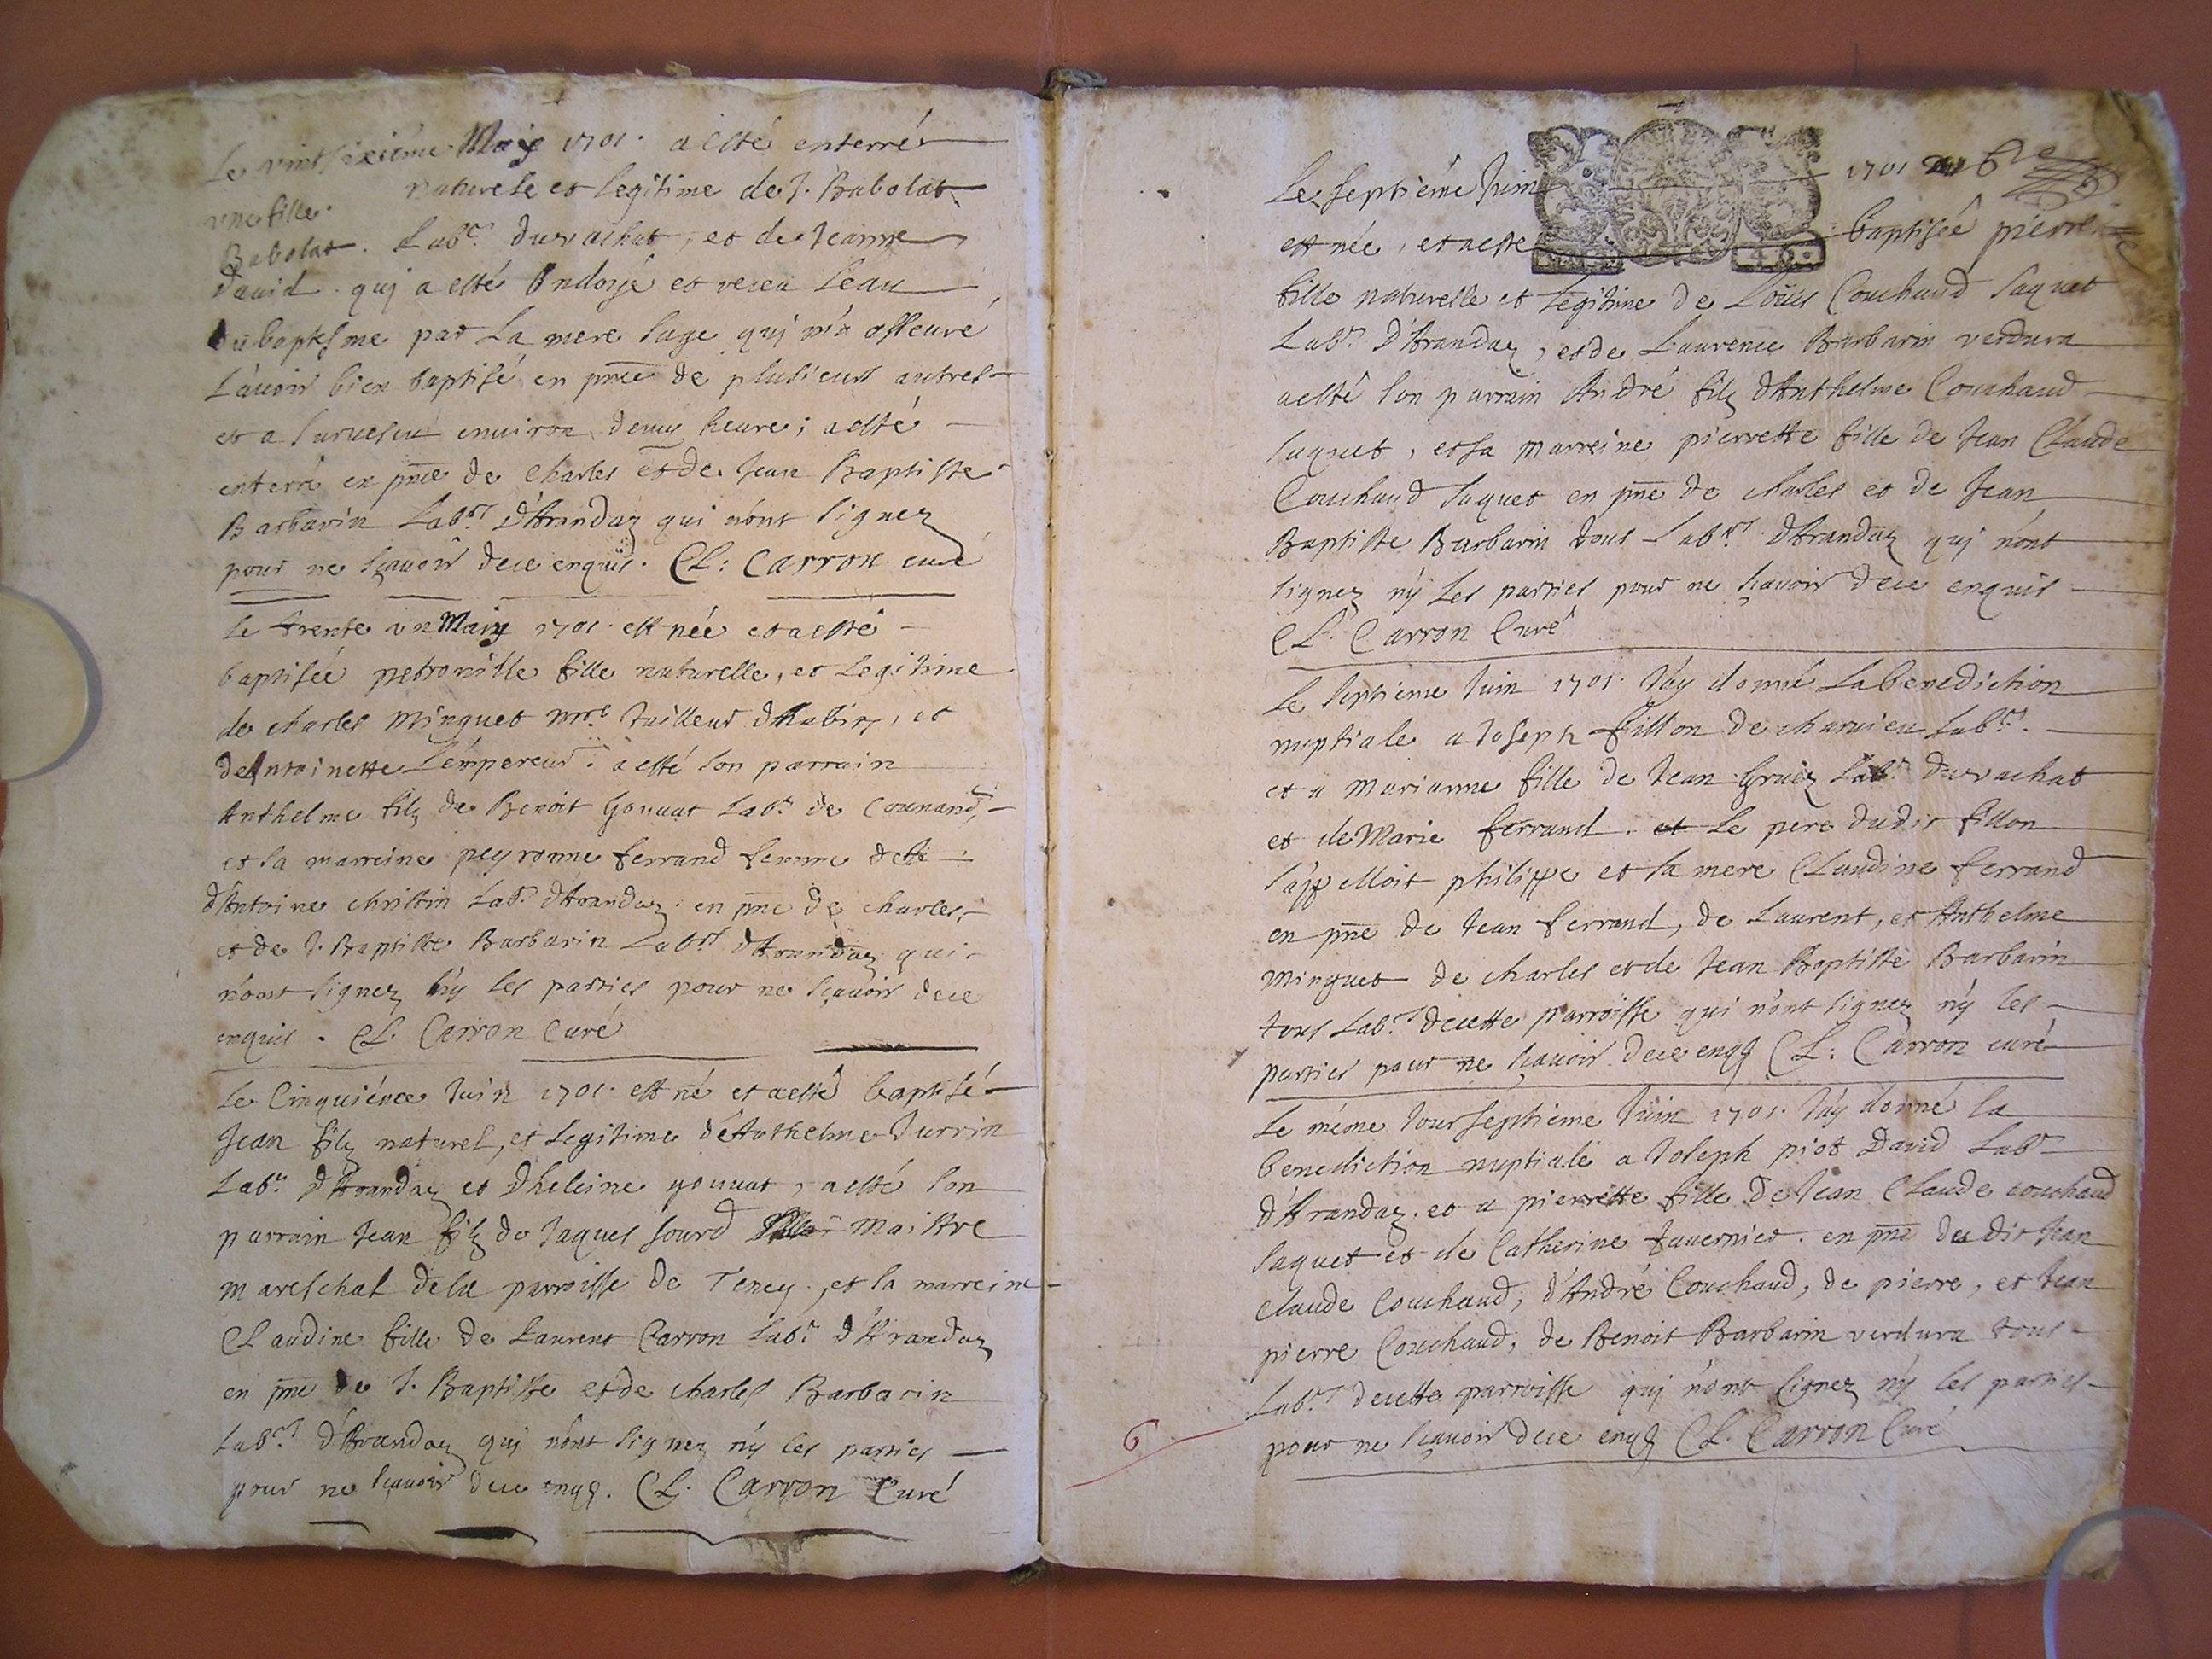 Le vintsixiéme May 1701. a esté enterré
une fille. naturele et legitime de J. Babolat
Babolat. Labr. du vachat, et de Jeanne
David. quj a esté Ondoyé et receu leau
du baptesme par La mere sage quj m'a asseuré
L'avoir bien baptisé en pnce de plusieurs autres
et a survescu environ demy heure; a esté
enterré en pnce de Charles et de Jean Baptiste
Barbarin Labrs d'Arandaz qui n'ont signez
pour ne sçavoir de ce enquis. CL: Carron curé
Le trente un May 1701. est née et a esté
baptisée petronille fille naturelle, et Legitime
de charles Minguet mre tailleur d'habits, et
de Antoinette Lémpereur. a esté son parrain
Anthelme filz de Benoit Gouvat Labr. de Counand,
et sa marreine peyronne ferrand femme
d'Antoine christin Labr. d'Arandaz. en pnce de charles,
et de J. Baptiste Barbarin Labrs d'Arandaz qui
n'ont signez n'y les parties pour ne sçavoir de ce
enquis. CL. Carron Curé
Le Cinquiéme Juin 1701. est né et a esté baptisé
Jean filz naturel, et Legitime de Anthelme Jurrin
Labr. d'Arandaz et d'heleine gouvat, a esté son
parrain Jean filz de Jaques sourd Maistre
mareschal de la parroisse de Teney, et sa marreine
CLaudine fille de Laurent Carron Labr. d'Arandaz
en pnce de J. Baptiste et de charles Barbarin
Labrs d'Arandaz quj n'ont signez n'y les parties
pour ne sçavoir de ce enqs. CL. Carron Curé
Le septiéme Juin 1701
est née, et a esté baptisée pierrette
fille naturelle et Legitime de Loüis Couchaud saquet
Labr. D'Arandaz, et de Laurence Barbarin verdura
a esté son parrain André filz d'Anthelme Couchaud
saquet, et sa marreine pierrette fille de Jean CLaude
Couchaud saquet en pnce de charles et de Jean
Baptiste Barbarin tous Labrs d'Arandaz quj n'ont
signez n'y Les parties pour ne sçavoir de ce enquis
CL. Carron Curé
Le septieme Juin 1701. J'ay donné La benediction
nuptiale a Joseph fillon de charvieu Labr.
et a Marianne fille de Jean Gruez Labr. du vachat
et de Marie ferrand. et Le pere dudit fillon
s'appelloit philippe et sa mere CLaudine ferrand
en pnce de Jean ferrand, de Laurent, et Anthelme
Minguet de charles et de Jean Baptiste Barbarin
tous Labrs de cette parroisse qui n'ont signez n'y les
parties pour ne sçavoir de ce enqs CL: Carron curé
Le méme Jour septieme Juin 1701. J'ay donné la
benediction nuptiale a Joseph piot David Labr
d'Arandaz. et a pierrette fille De Jean CLaude couchaud
saquet et de Catherine tavernier. en pnce du dit Jean
claude Couchaud, d'André Couchaud, de pierre, et Jean
pierre Couchaud, de Benoit Barbarin verdura tous
Labrs de cette parroisse quj n'ont signez n'y les parties
pour ne sçavoir de ce enqs CL. Carron Curé
6